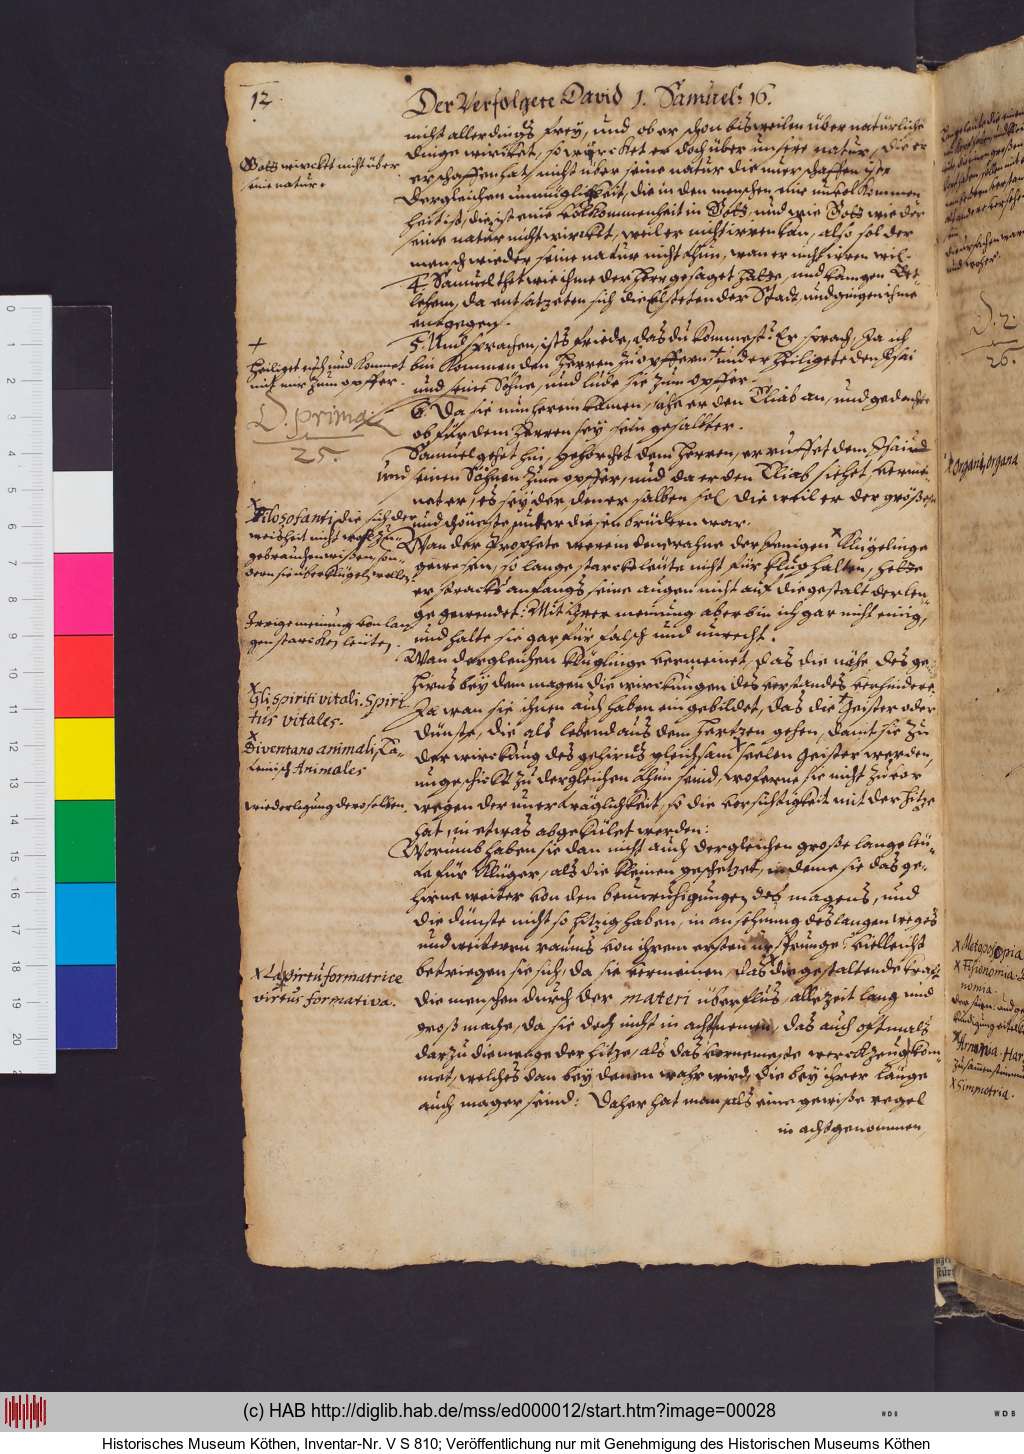 12.
Der Verfolgete David 1. Samuel: 16.
nicht allerdings frey, und ob er schon bisweilen über natürliche
dinge wircket, so wircket er doch über unsere natur, die er
erschaffen hat, nicht über seine natur die unerschaffen ist.
Gott wircket nicht über
seine natur.
dergleichen unmügligkeit, die in den menschen eine unvolkommen-
heit ist, die ist eine volkommenheit in Gott, und wie Gott wieder
seine natur nicht wircket, weil er nicht irren kan, also sol der
mensch wieder seine natur nicht thun, wan er nicht irren wil.
4. Samuel thet wie ihme der Herr gesaget hatte, und kam gen Bet-
lehem, da entsatzeten sich die Elsteten der Stadt, und gingen ihme
entgegen.
5. Und sprachen, ists friede, das du kommest? Er sprach, Ja ich
bin kommen dem Herren zu opffern + und er heiligete den Isai
und seine Söhne, und lude sie zum opffer.
+
Heiliget euch und kommet
mit mir zum opffer.
D. prima
25.
6. Da sie nun herein kamen, sahe er den Eliab an, und gedachte
ob für dem Herren sey sein gesalbter.
Samuel gehet hin, gehorchet dem Herren, er ruffet dem Isai und
seinen Söhnen zum opffer, und da er den Eliab siehet, vermei-
net er, es sey der, den er salben sol, die weil er der größeste
und schöneste unter diesen brüdern war.
x
Filosofanti, die sich der
weisheit nicht wohl zu
gebrauchen wißen, son-
dern sie überklügeln wollen
Wan der Prophete von dem wahne derjenigen x Klügelinge
gewesen, so lange starcke leute nicht für klug halten, hette
er stracks anfangs seine augen nicht auf die gestalt der len-
ge gewendet: Mit ihrer meinung aber bin ich gar nicht einig,
und halte sie gar für falsch und unrecht.
Irrige meinung von lan-
gen starcken leuten.
Wan dergleichen Klüglinge vermeinet, das die nähe des ge-
hirns bey dem magen die wirckungen des verstandes verhindere.
Ja wan sie ihnen auch haben eingebildet, das die + Geister oder
dünste, die als lebend aus dem Hertzen gehen, damit sie zu
der wirckung des gehirns gleichsam x seelen Geister werden,
ungeschickt zu dergleichen thun seind, woferne sie nicht zuvor
wegen der unerträglichkeit, so die vorsichtigkeit mit der hitze
hat, in etwas abgekület werden:
x
Gli spiriti vitali. Spiri-
tus vitales.
x
Diventano animali, La-
teinisch Animales
wiederlegung deroselben.
Worumb haben sie dan nicht auch dergleichen große lange leu-
te für klüger, als die kleinen geschetzet, in deme sie das ge-
hirne weiter von den beunruhigungen des magens, und
die dünste nicht so hitzig haben, in ansehnung des langen weges
und weiteren raums von ihrem ersten ursprunge? Vielleicht
betriegen sie sich, da sie vermeinen, das x die gestaltende kraft
die menschen durch der materi überflus, allezeit lang und
groß mache, da sie doch nicht in acht nemen, das auch oftmals
darzu die menge der hitze, als das vornemeste werckzeug kom-
met, welches dan bey denen wahr wird, die bey ihrer lange
auch mager seind: Daher hat man als eine gewisse regel
in acht genommen
x La virtu formatrice
virtus formativa.
D. 2.
26.
Organi, organa
x Metoposcopia
x Fisionomia
nomia.
x Simmetria.
(c) HAB http://diglib.hab.de/mss/ed000012/start.htm?image=00028
Historisches Museum Köthen, Inventar-Nr. V S 810; Veröffentlichung nur mit Genehmigung des Historischen Museums Köthen